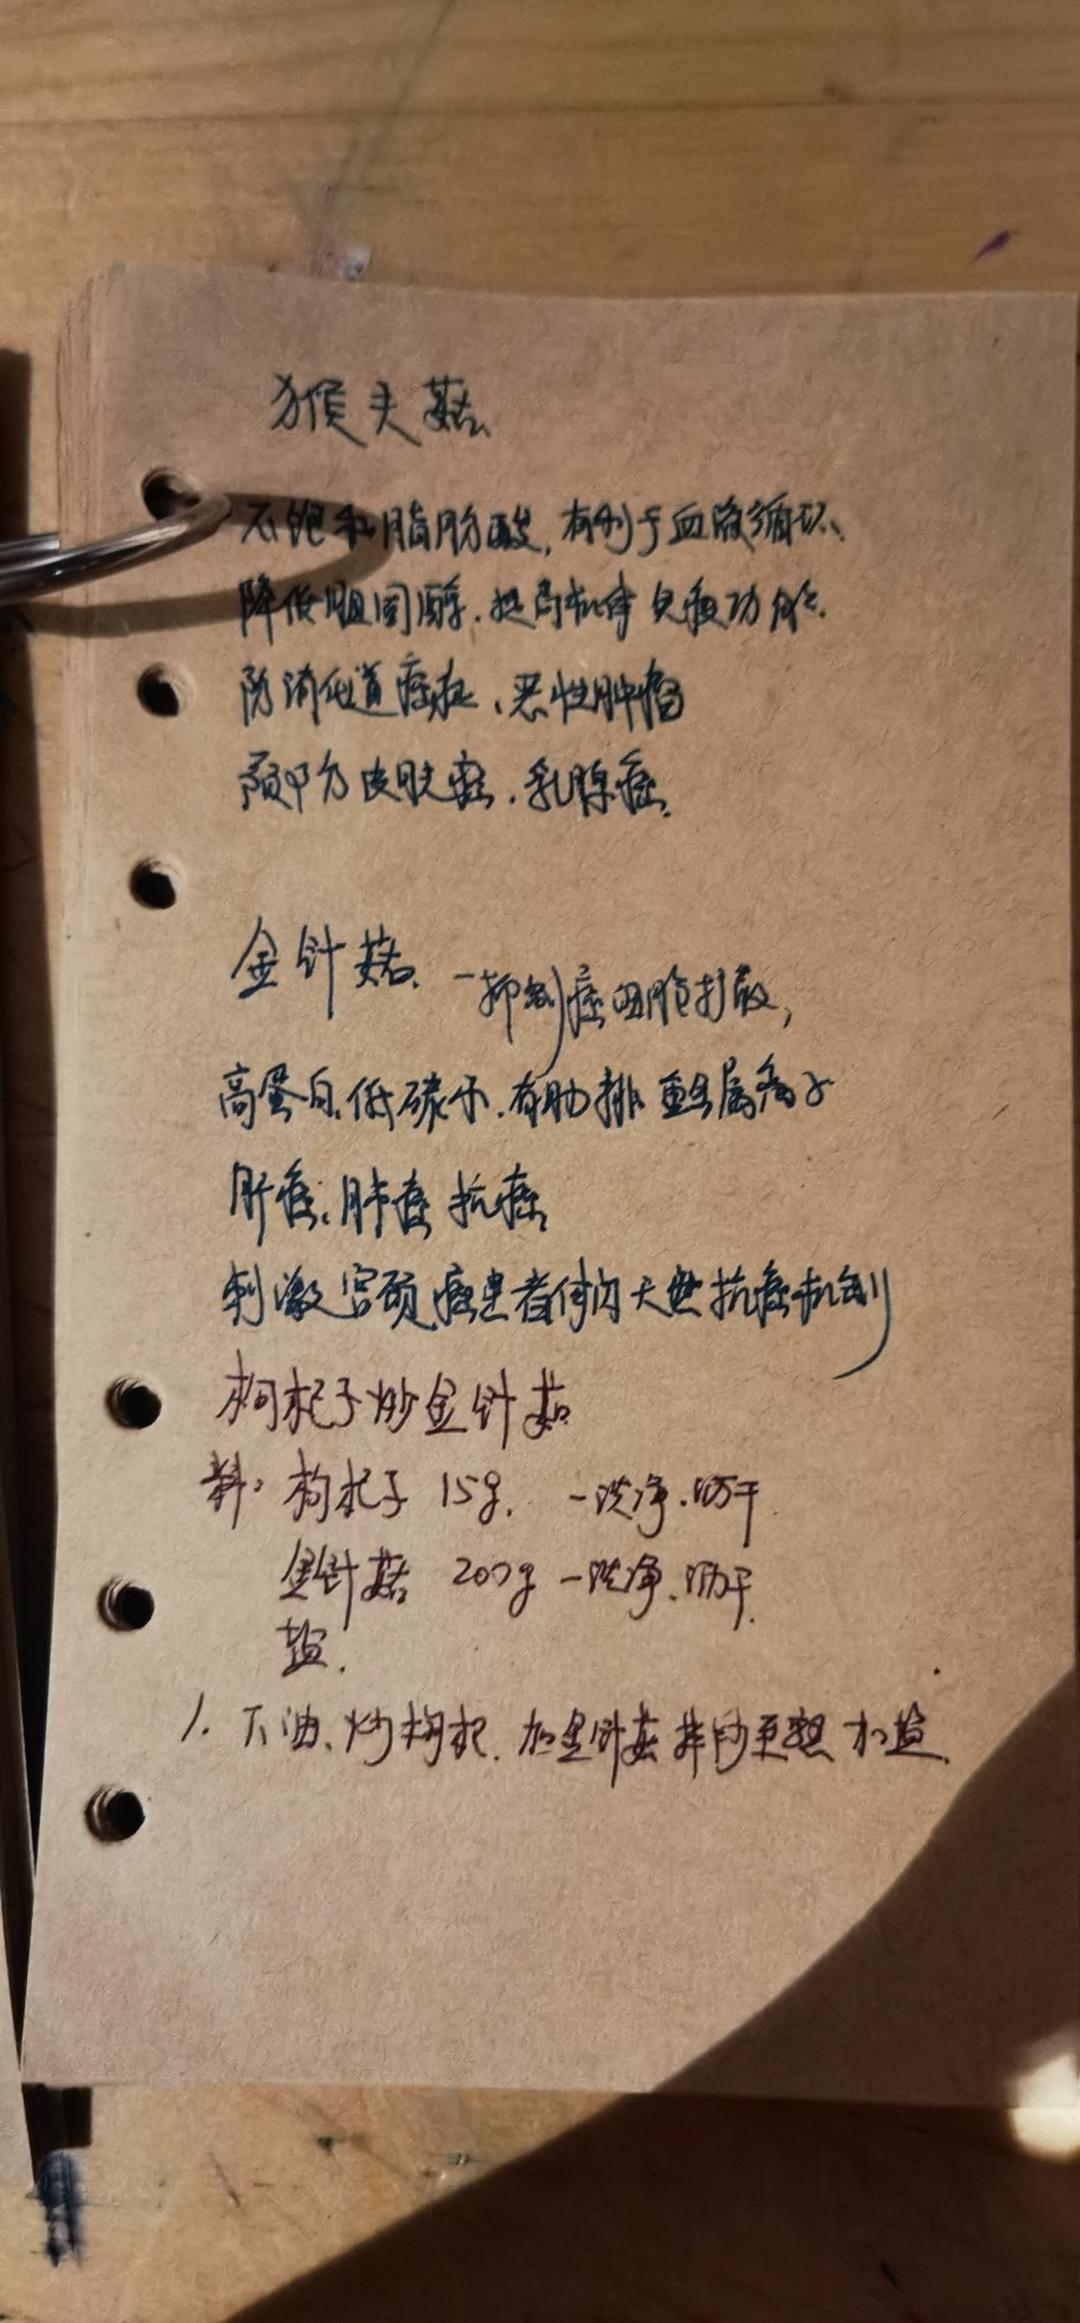 猴头菇
不饱和脂肪酸,有利于血液循环、
降低胆固醇.提高机体免疫功能.
防消化道癌症、恶性肿瘤
预防皮肤癌.乳腺癌.
金针菇. 一抑制癌细胞扩散,
高蛋白.低碳水.有助排重金属离子
肝癌.肺癌 抗癌
刺激宫颈癌患者体内天然抗癌机制
枸杞子炒金针菇
料: 枸杞子 15g. 一洗净.沥干
金针菇 200g 一洗净.沥干.
盐.
1. 下油、炒枸杞. 加金针菇 拌炒至熟 加盐.